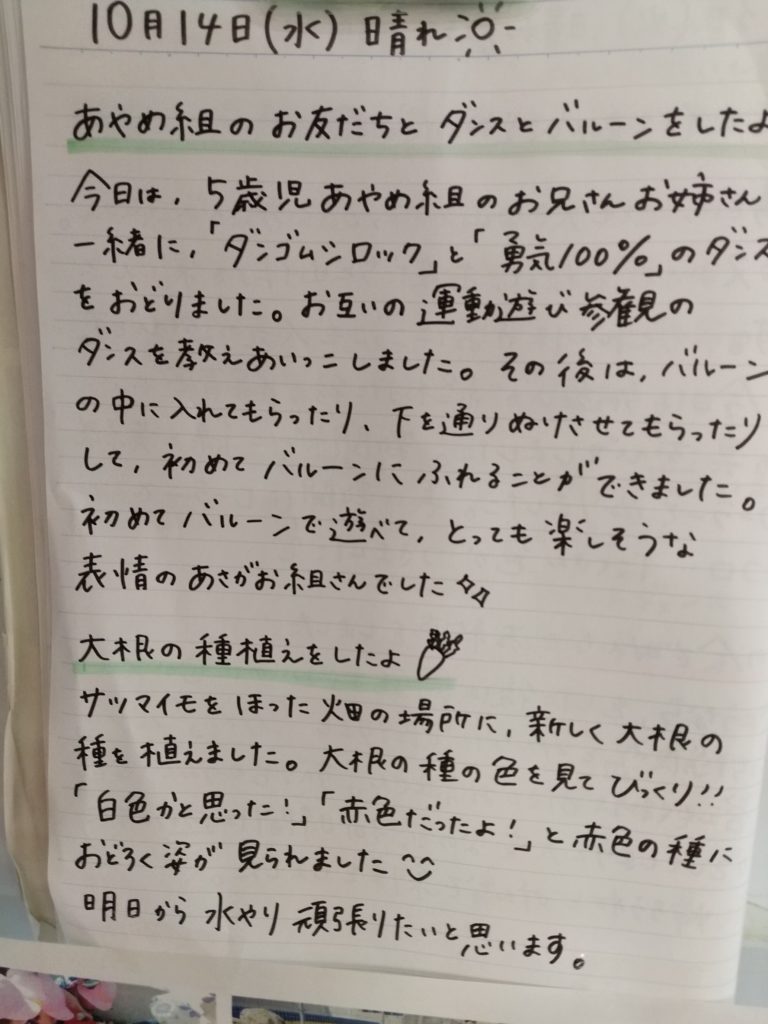 10月14日(水) 晴れ
あやめ組の お友だちと ダンスと バルーンをしたよ
今日は、5歳児 あやめ組の お兄さん お姉さん
一緒に、「ダンゴムシロック」と「勇気100%」のダンス
を おどりました。お互いの 運動遊び 参観の
ダンスを 教えあいっこしました。その後は、バルーン
の中に 入れてもらったり、下を通りぬけさせてもらったり
して、初めて バルーンに ふれることが できました。
初めて バルーンで 遊べて、とっても 楽しそうな
表情の あさがお組さんでした
大根の 種植えをしたよ
サツマイモを ほった 畑の場所に、新しく 大根の
種を 植えました。大根の 種の色を見て びっくり!!
「白色かと思った!」「赤色だったよ!」と赤色の種に
おどろく姿が 見られました
明日から 水やり 頑張りたいと思います。